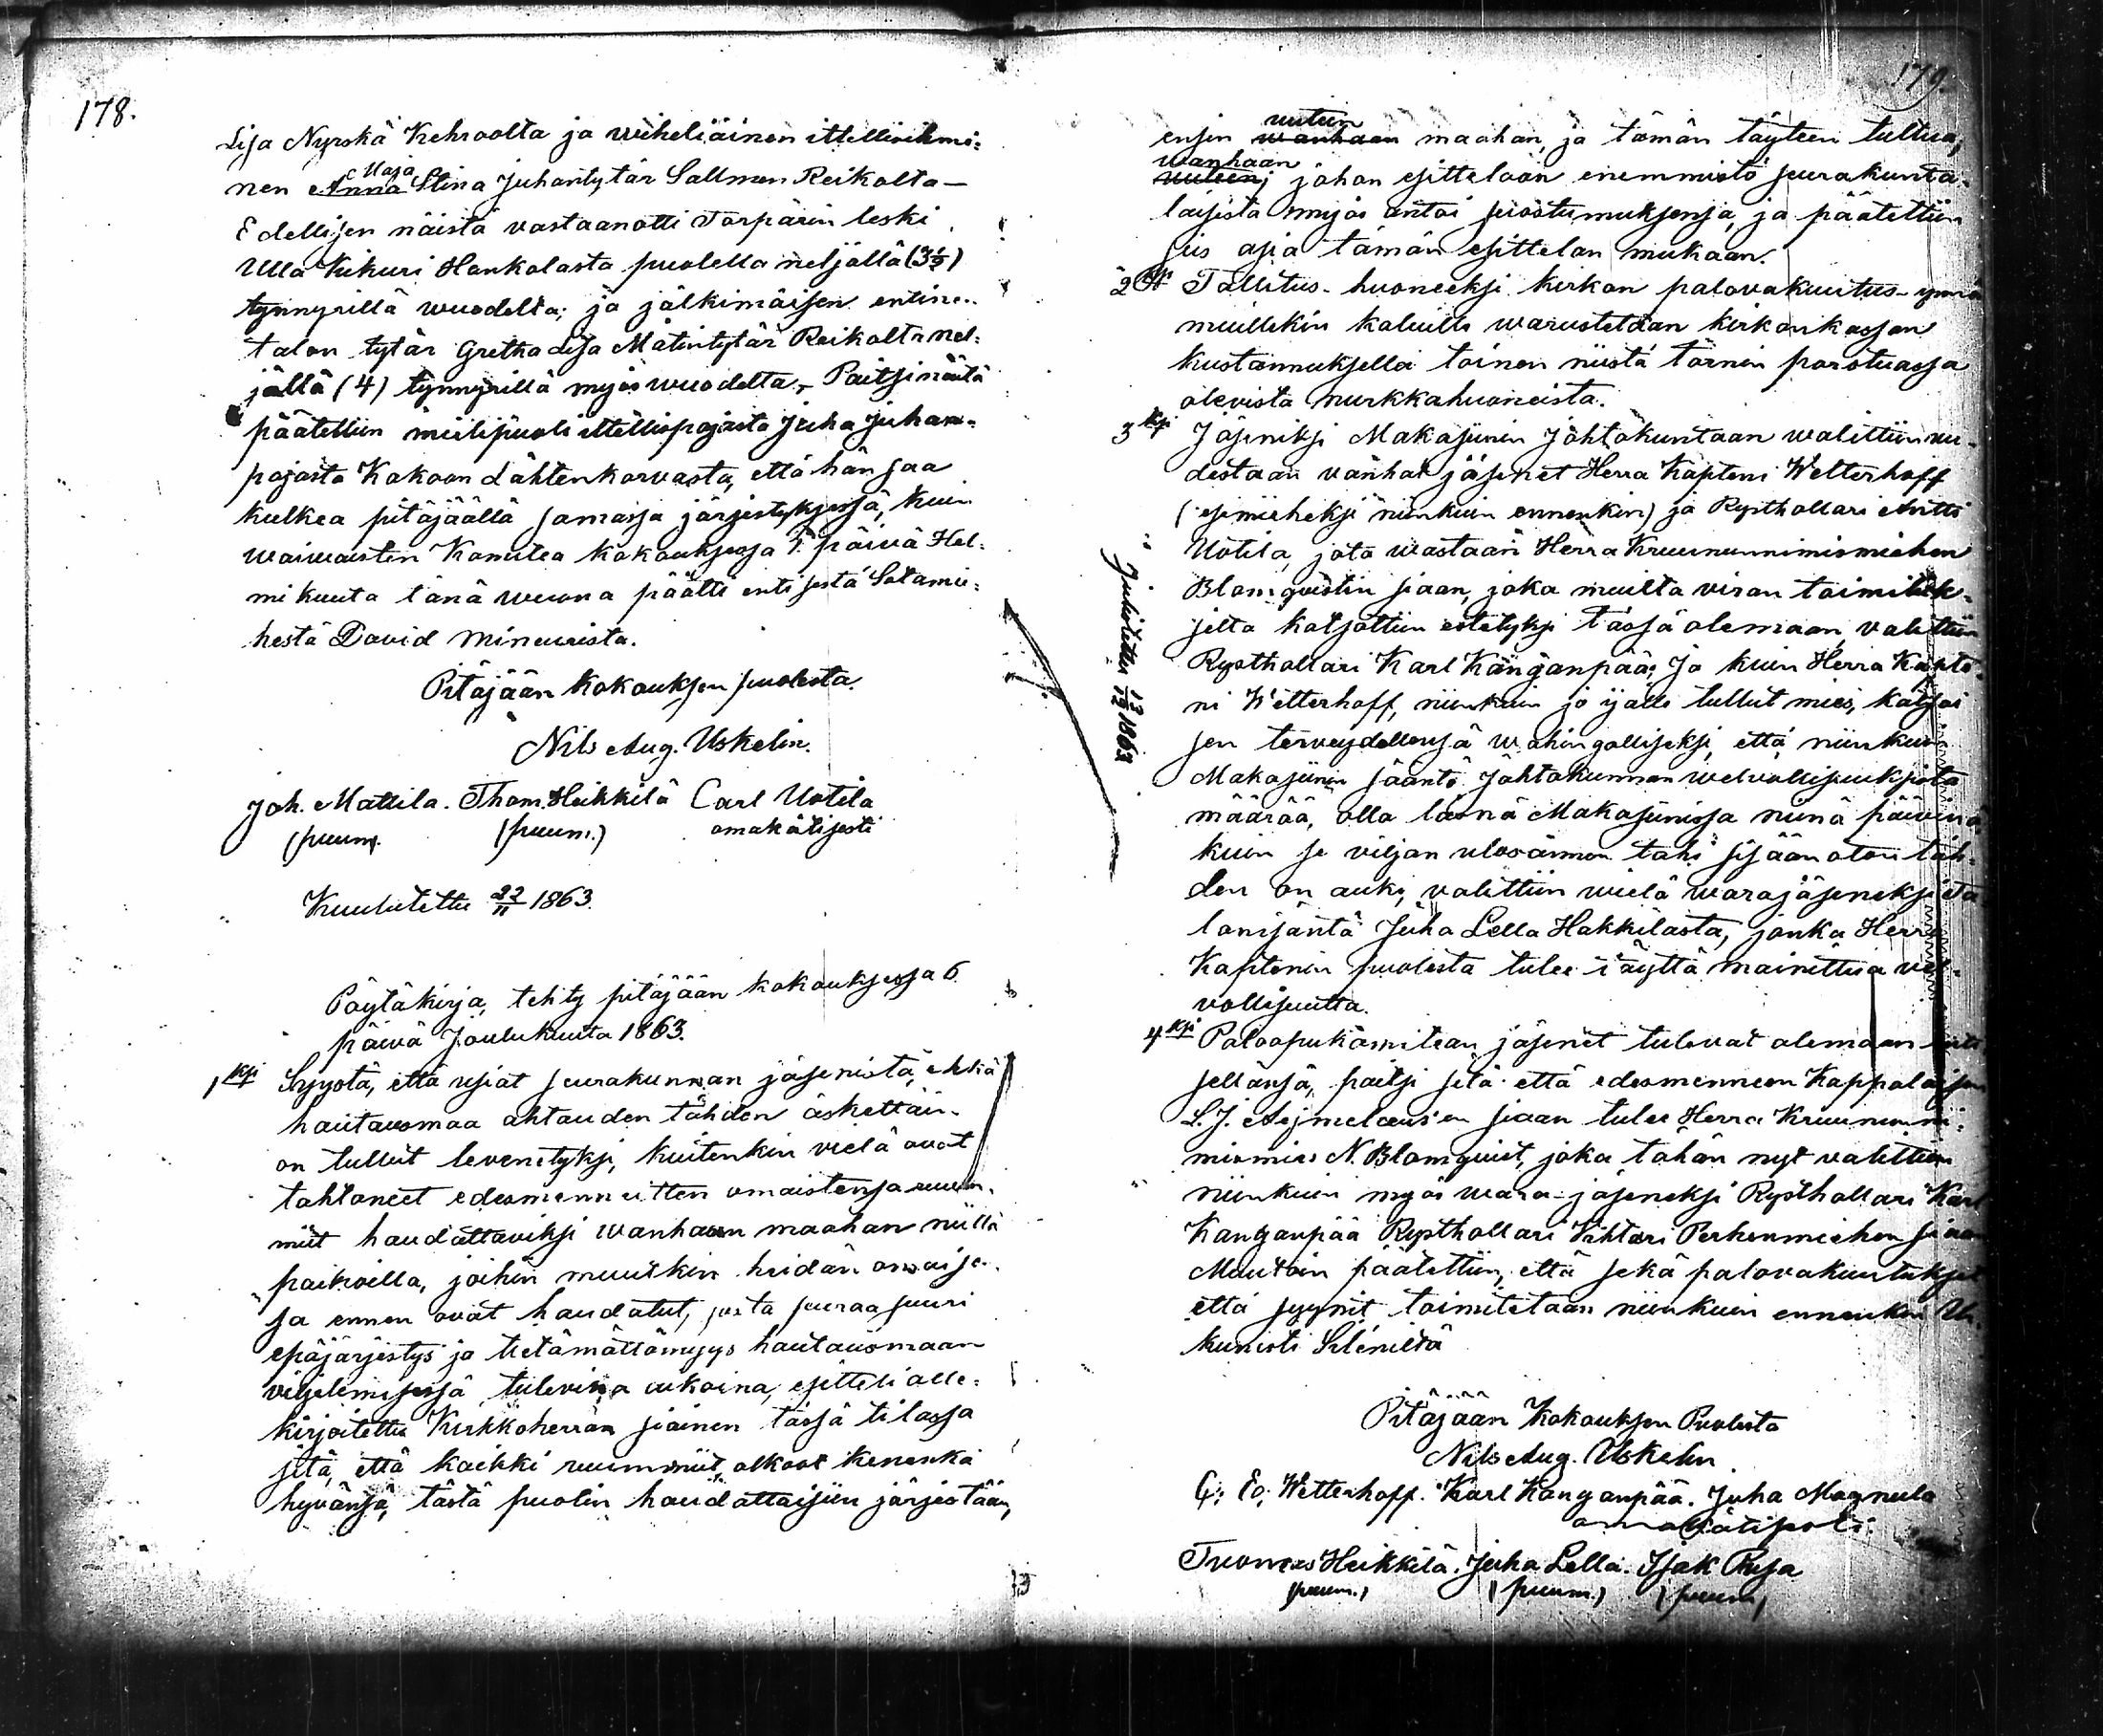 178.
Lisa Nyrskä Kehroolta ja wiheliäinen ittellisihmi-
nen Anna Maja Stina Juhantytär Sallmen Reikolta —
Edellisen näistä vastaanotti Torpärin leski
Ulla Kukuri Hankalasta puolella neljällä (3½)
tynnyrillä wuodelta; ja jälkimäisen entinen
talon tytär Gretha Lisa Matintytär Reikolta nel-
jällä (4) tynnyrillä myös wuodelta, Paitsi näitä
päätettiin mielipuoli ittellispojasta Juha Juhan-
pojasta Kokoon Lähtenkorvasta, että hän saa
kulkea pitäjäällä samassa järjestyksessä, kuin
waiwaisten Komitea kokouksessa päivä Hel-
mikuuta tänä wuona päätti entisestä Sotamie-
hestä David Mineurista.
Pitäjään kokouksen puolesta.
Nils Aug. Uskelin.
Joh. Mattila. Thom. Heikkilä Carl Uotila
(puum. (puum.) omakätisesti
Kuulutettu 22/11 1863.
Pöytäkirja, tehty pitäjään kokouksessa 6.
päivä Joulukuuta 1863.
1ksi Syystä, että usiat seurakunnan jäsenistä, ehkä
hautausmaa ahtauden tähden äskettäin
on tullut levenetyksi, kuitenkin vielä ovat
tahtoneet edesmenneitten omaistensa ruum-
miit haudattaviksi wanhaan maahan niillä
paikoilla, joihin muutkin heidän omaisen-
sa ennen ovat haudatut, josta seuraa suuri
epäjärjestys ja tietämättömyys hautausmaan
viljelemisessä tulevina aikoina, esitteli alle-
kirjoitettu Kirkkoherran siainen tässä tilassa
sitä, että kaikki ruummiit, olkoot kenenkä
hyvänsä, tästä puolin haudattaisiin järjestään,
179.
ensin wanhaan uuteen maahan, ja tämän täyteen tultua,
uuteen wanhaan; johon esittelöön enemmistö seurakunta-
laisista myös antoi suostumuksensa, ja päätettiin
siis asia tämän esittelön mukaan.
2ksi Tallitus-huoneeksi kirkon palovakuutus- ynnä
muillekin kaluille warustetaan kirkonkassan
kustannuksella toinen niistä tornin porstuassa
olevista nurkkahuoneista.
3ksi Jäseniksi Makasiinin Johtokuntaan walittiin uu-
destaan vanhat jäsenet Herra Kapteni Wetterhoff
(esimieheksi niinkuin ennenkin) ja Rysthollari Antti
Uotila, jota wastaan Herra Kruununnimismiehen
Blomqvistin siaan, joka muilta viran toimituk-
silta katsottiin estetyksi tässä olemaan, valittiin
Rysthollari Karl Kanganpää; Ja kuin Herra Kapte-
ni Wetterhoff, niinkuin jo ijälle tullut mies, katsoi
sen terveydellensä wahingolliseksi, että niinkuin
Makasiinin sääntö Johtokunnan welvollisuuksista
määrää, olla läsnä Makasiinissa niinä päivinä
kuin se viljan ulosannon tahi sisäänoton täh-
den on auki, valittiin wielä warajäseneksi Ta-
lonisäntä Juha Lella Hakkilasta, jonka Herra
Kaptenin puolesta tulee täyttä mainittua vel-
vollisuutta.
4ksi Paloapukomitean jäsenet tulevat olemaan
sellänsä, paitsi sitä että edesmenneen Kappalaisen
L. J. Aejmelaeus'en siaan tulee Herra Kruununni-
mismies N. Blomquist, joka tähän nyt valittiin
niinkuin myös wara-jäseneksi Rysthollari Karl
Kanganpää Rysthollari Vihtari Perhenmiehen siaan
Muutoin päätettiin, että sekä palovakuutukset
että syynit toimitetaan niinkuin ennenkin
Pitäjään Kokouksen Puolesta
Nils Aug. Uskelin
C. Ed. Wetterhoff. Karl Kanganpää. Juha Magneela
omakätisesti.
Tuomas Heikkilä. Juha Lella. Isak Rusa
(puum.) (puum.) (puum)
Julistettu 13/12 1863